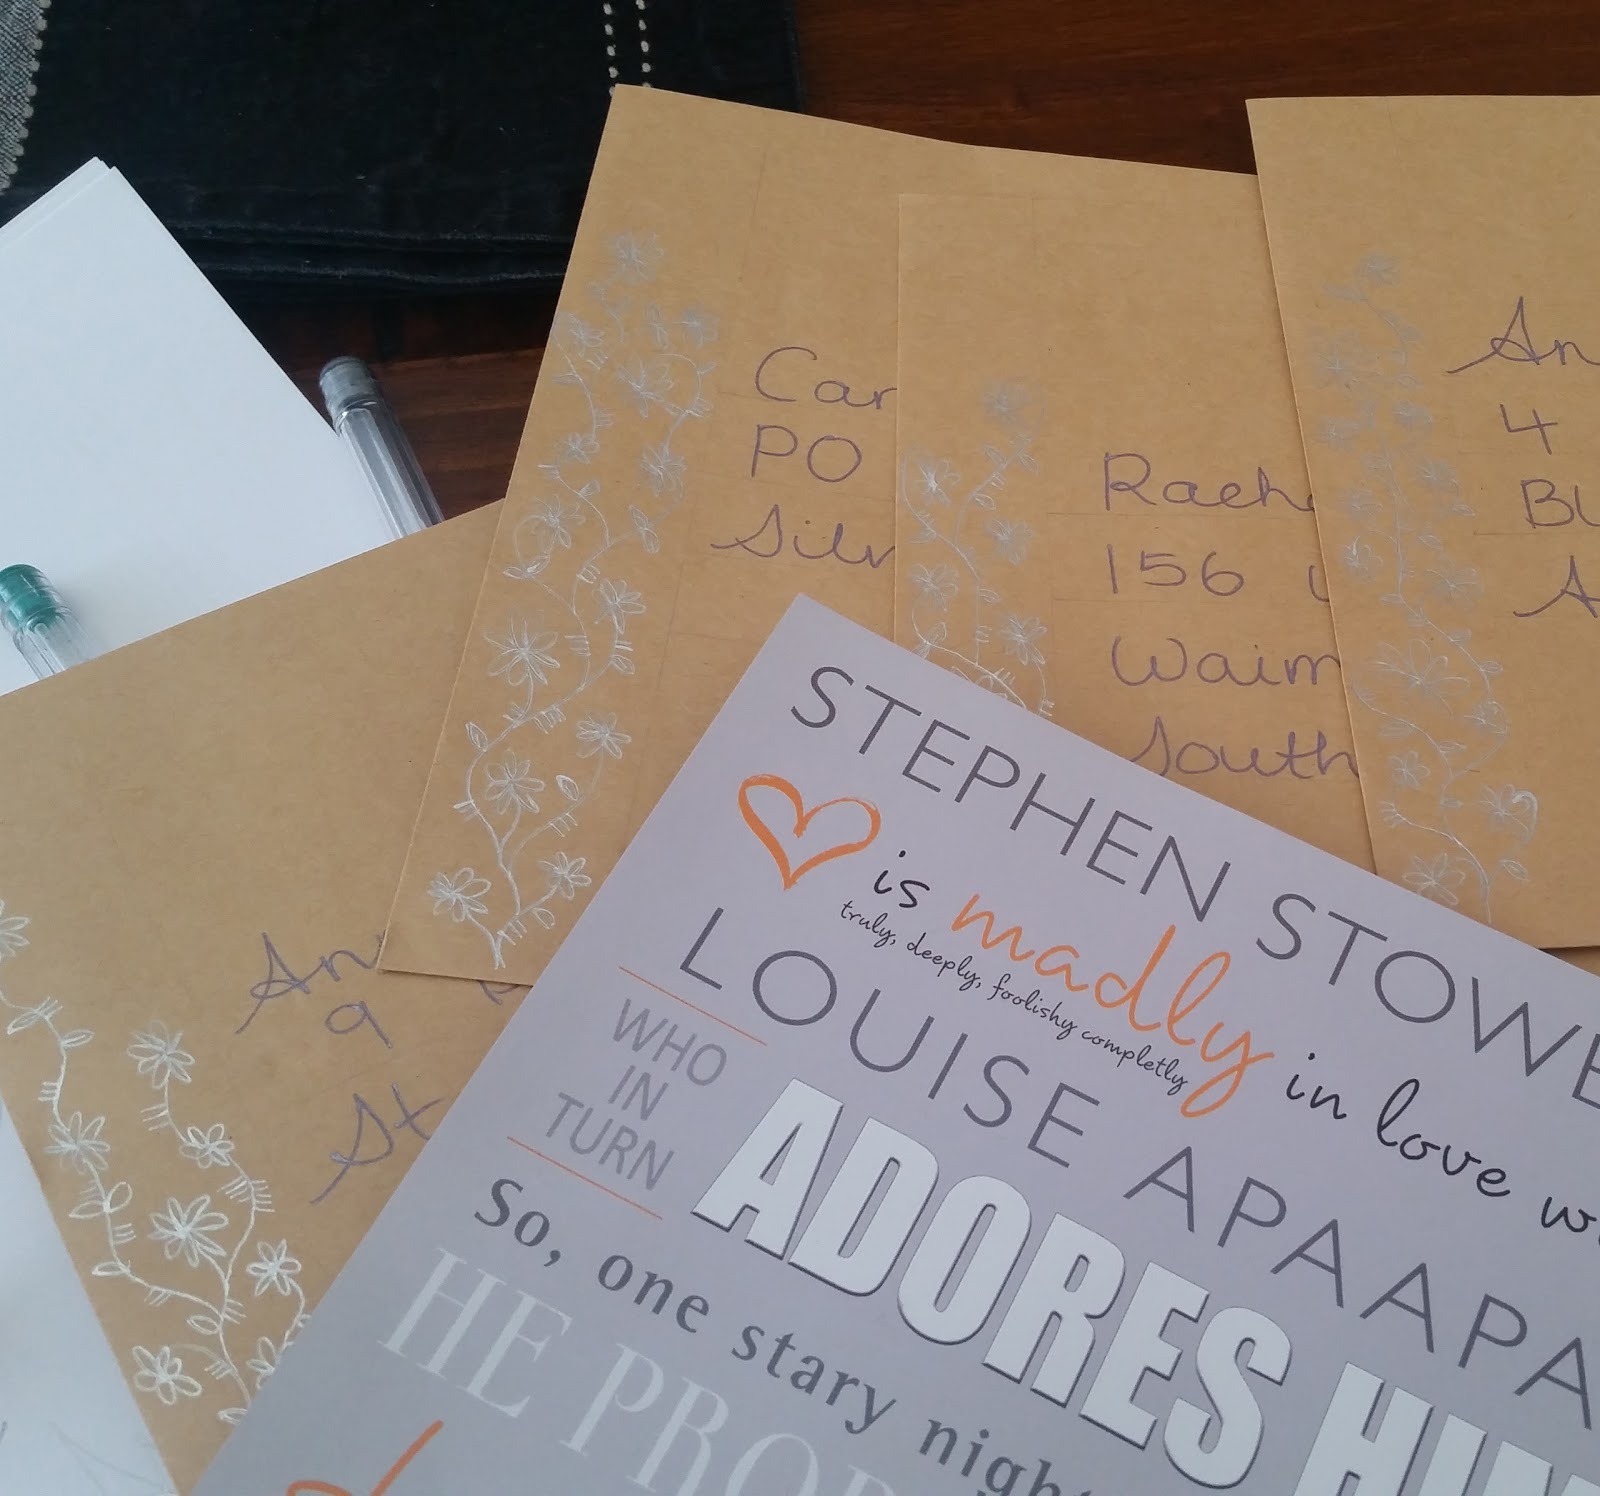 Car
PO
Silv
Rach
156
Waim
South
An
4
BL
A
An
9
St
STEPHEN STOWE
is madly in love w
truly, deeply, foolishy completly
LOUISE APAAPA
WHO
IN
TURN
ADORES HIM
So, one stary nigh
HE PRO